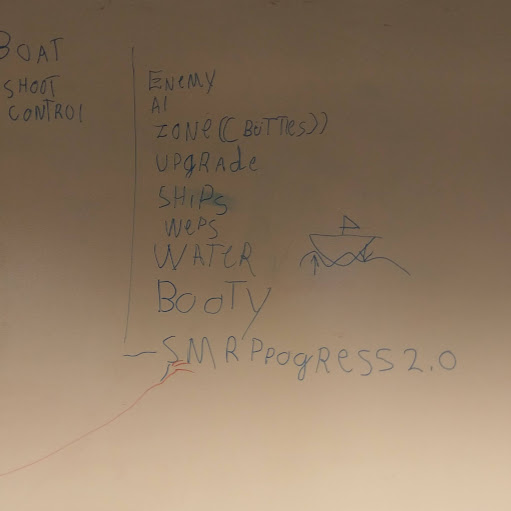 BOAT
SHOOT
CONTROL
ENEMY
AI
ZONE((BOTTLES))
UPGRADE
SHIPS
WEPS
WATER
BOOTY
SMR PROGRESS 2.0